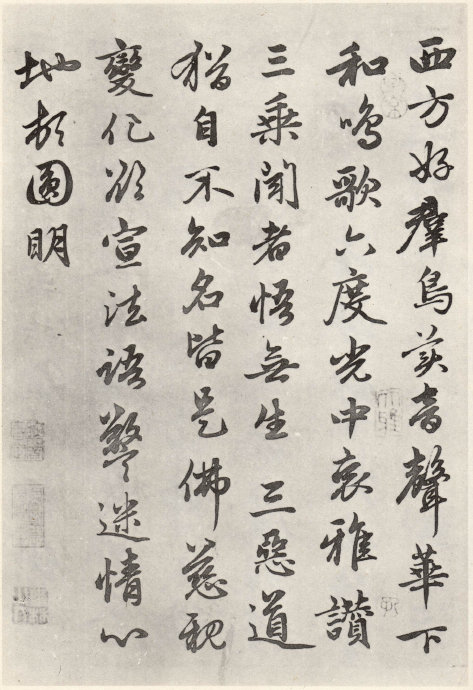 西方好羣鳥美音聲華下
和鳴歌六度光中哀雅讚
三乘聞者悟無生 三惡道
猶自不知名皆是佛慈親
變化欲宣法語警迷情心
地頓圓明